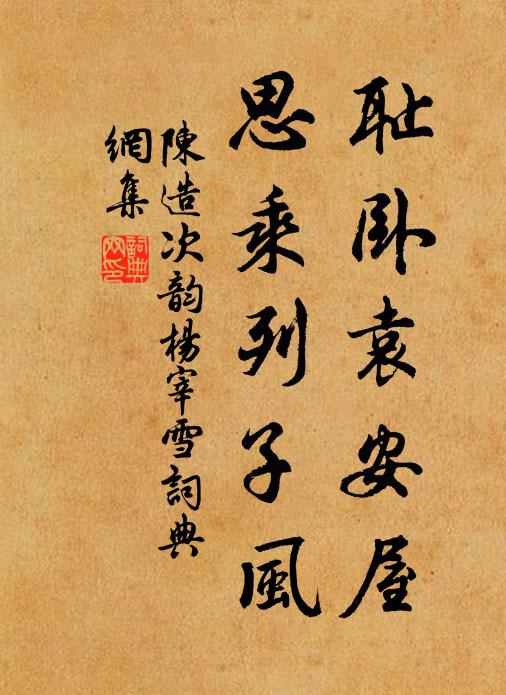 耻卧袁安屋
思乘列子風
陳造次韵楊宰雪詞典
網集
詞典
网印